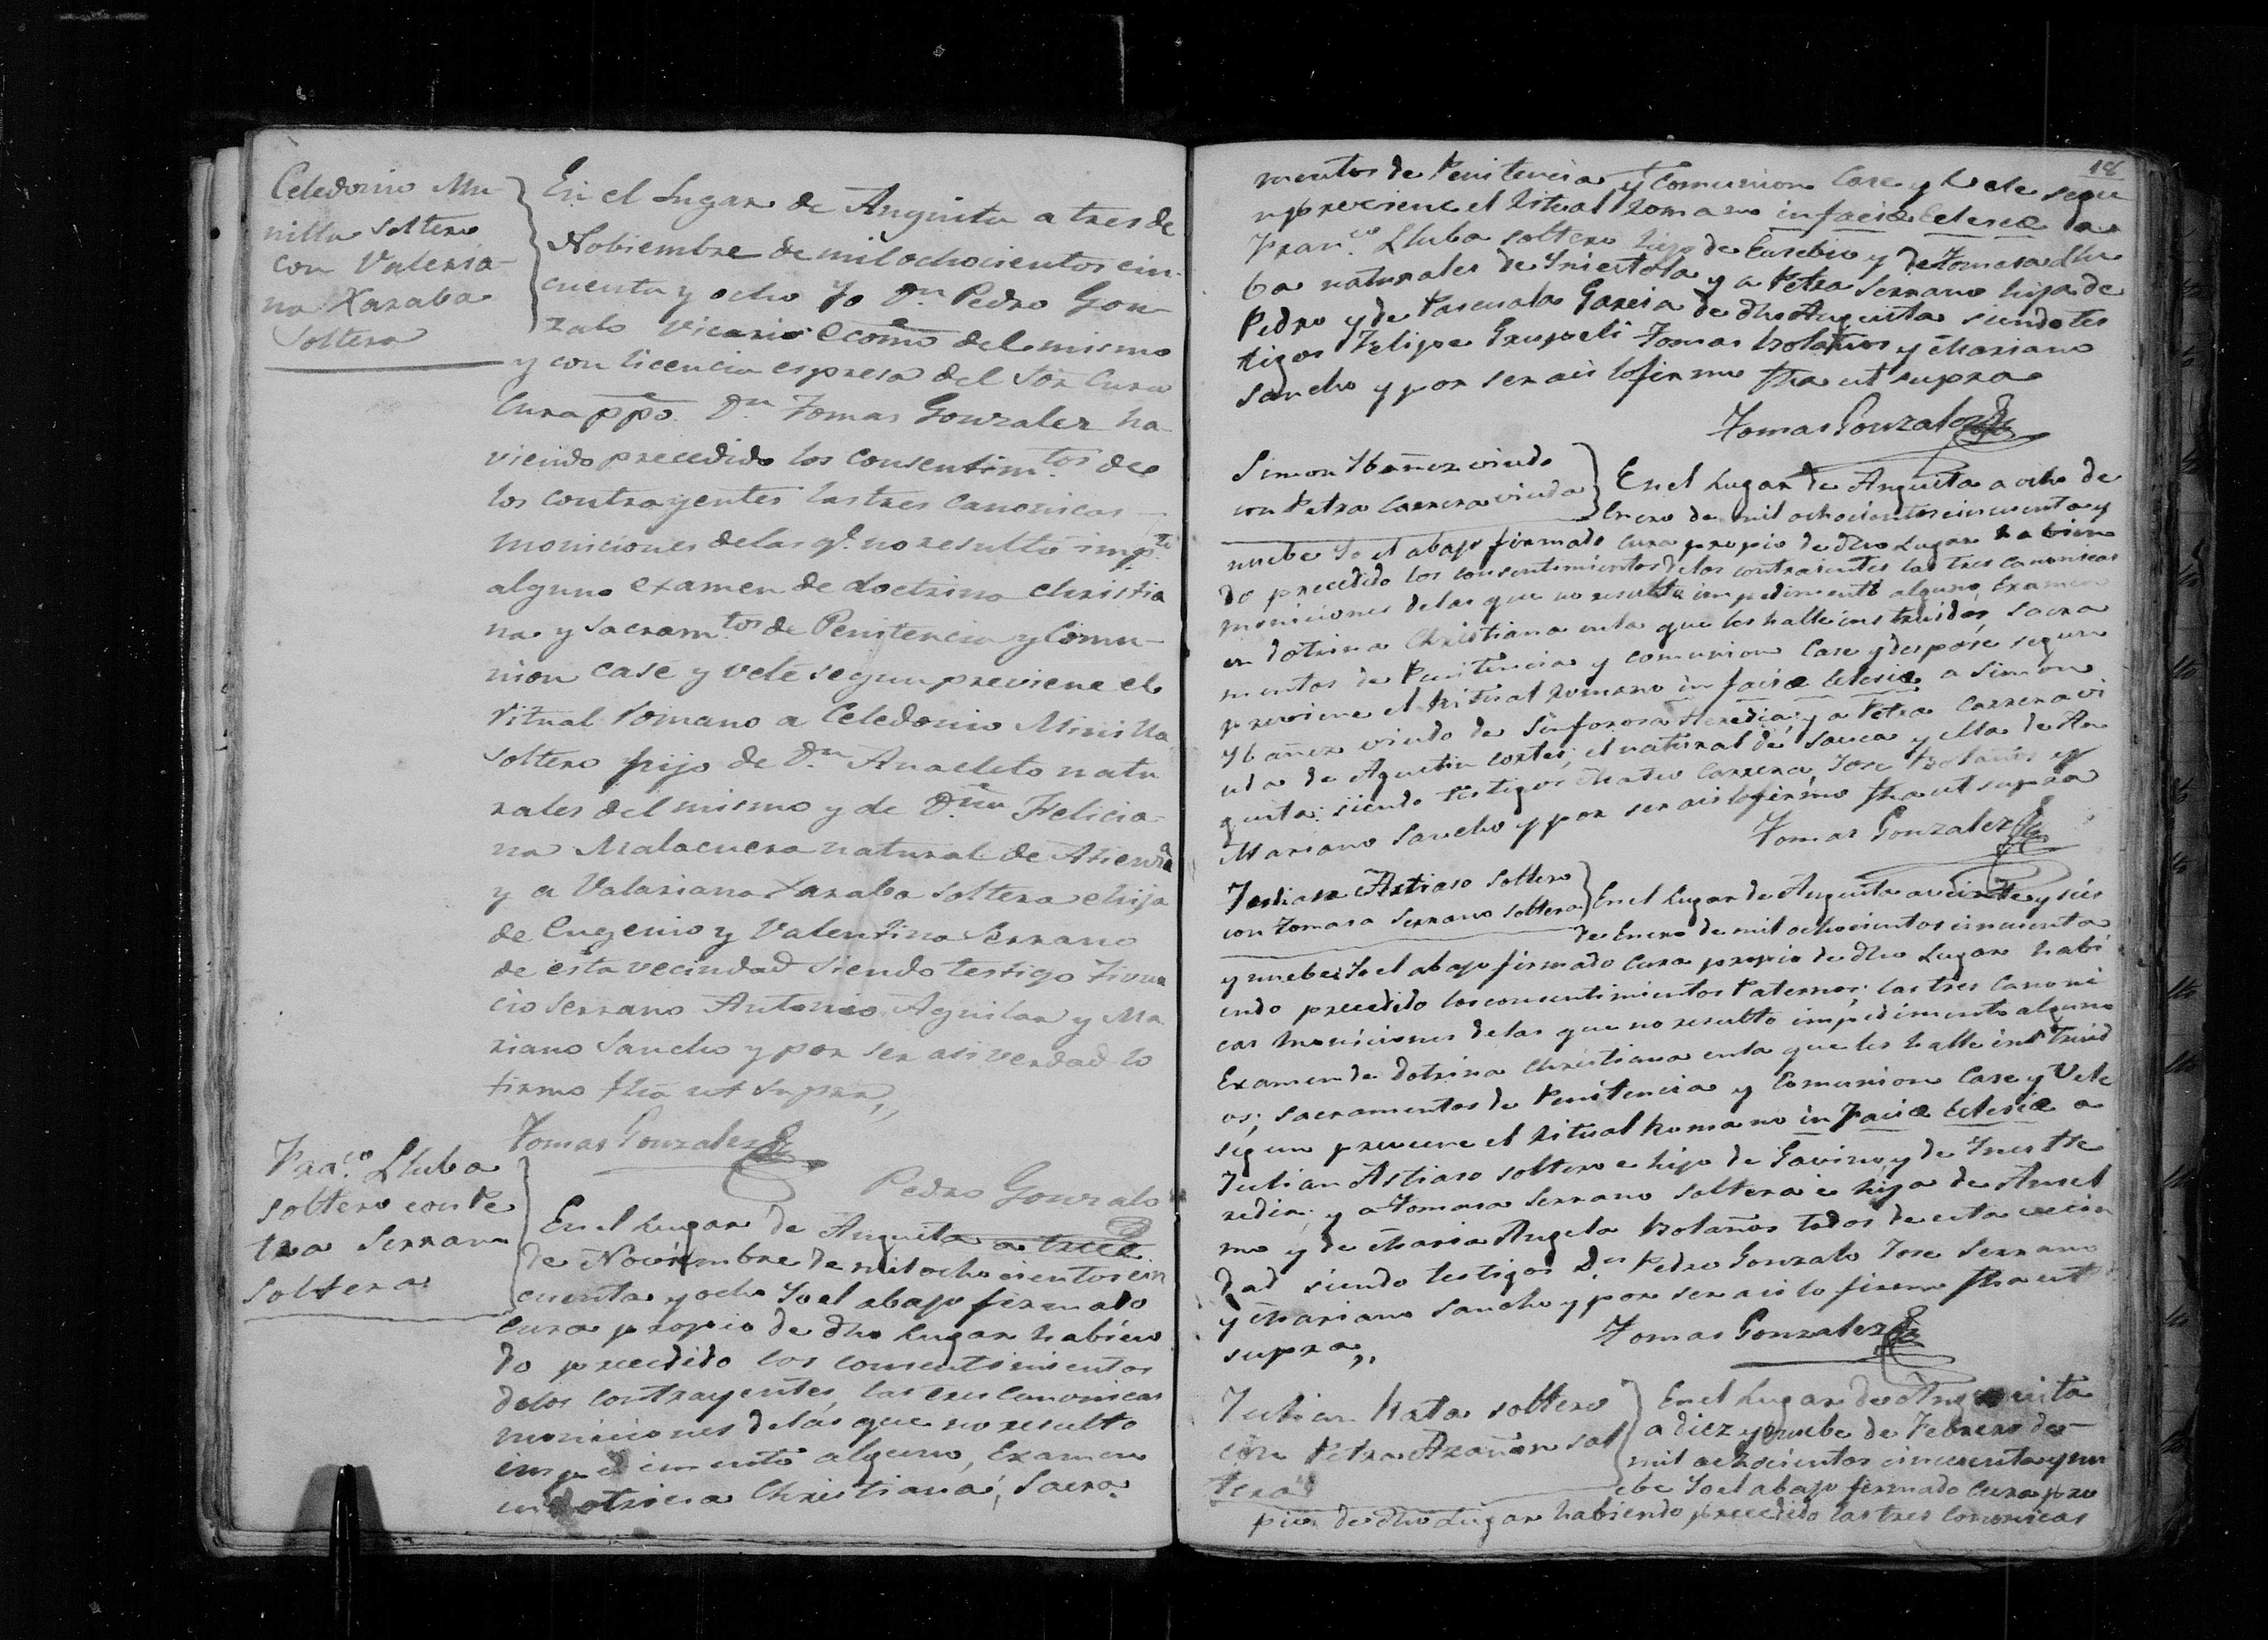 Celedonio Mu-
nilla soltero
con Valeria-
na Xaraba
Soltera
En el Lugar de Anguita a tres de
Nobiembre de mil ochocientos cin-
cuenta y ocho Yo Dn. Pedro Gon-
zalo Vicario ecomo del mismo
y con licencia espresa del Sor Cura
Cura ppo. Dn. Tomas Gonzalez ha-
viendo precedido los consentimtos. de
los contrayentes las tres canonicas
moniciones de las q. no resultó impto.
alguno examen de doctrina christia
na y sacramtos. de Penitencia y Comu-
nion casé y velé segun previene el
ritual romano a Celedonio Minilla
soltero hijo de Dn. Anacleto natu
rales del mismo y de Dña. Felicia-
na Malacuera natural de Atienza
y a Valariana Xaraba soltera e hija
de Eugenio y Valentina Serrano
de esta vecindad siendo testigo
cio Serrano Antonio Aguilar y Ma
riano Sancho y por ser asi verdad lo
firmo fha ut supra,,
Tomas Gonzalez
Pedro Gonzalo
Franco. Lluba
soltero con Pe
tra Serrano
soltera
En el Lugar de Anguita a trece
de Noviembre de mil ochocientos cin
cuenta y ocho Yo el abajo firmado
Cura propio de dho Lugar habien
do precedido los consentimientos
de los contrayentes, las tres canonicas
moniciones de las que no resulto
impedimento alguno, Examen
en dotrina Christiana, Sacra-
18
mentos de Penitencia y Comunion Case y Vele segu
n previene el Ritual Romano in facie Eclesie a
Franco. Lluba soltero hijo de Eusebio y de Tomasa Llu
ba naturales de Iniestola y a Petra Serrano hija de
Pedro y de Pascuala Garcia de dho Anguita siendo tes
tigos Felipe Tomas Bolaños y Mariano
Sancho y por ser asi lo firmo fha ut supra
Tomas Gonzalez
Simon Ybañez viudo
con Petra Carrera viuda
En el Lugar de Anguita a ocho de
Enero de mil ochocientos cincuenta y
nuebe Yo el abajo firmado Cura propio de dho Lugar habien
do precedido los consentimientos de los contraientes las tres canonicas
moniciones de las que no resulto impedimento alguno, Examen
en dotrina Christiana en la que les halle instruidos, Sacra
mentos de Penitencia y comunion Case y despose segun
previene el Ritual Romano in facie Eclesie a Simon
Ybañez viudo de Sinforosa Heredia; y a Petra Carrera vi
uda de Agustin Cortes; el natural de Sauca y ella de An
guita: siendo testigos Mateo Carrera, Jose Bolaños y
Mariano Sancho y por ser asi lo firmo fha ut supra
Tomas Gonzalez
Julian Astiaso soltero
con Tomasa Serrano soltera
En el Lugar de Anguita a veinte y seis
de Enero de mil ochocientos cincuenta
y nuebe: Yo el abajo firmado Cura propio de dho Lugar habi
endo precedido los consentimientos Paternos; las tres Canoni
cas moniciones de las que no resulto impedimento alguno
Examen de dotrina Christiana en la que les halle instruid
os; sacramentos de Penitencia y Comunion Case y Vele
segun previene el Ritual Romano in facie Eclesie a
Julian Astiaso soltero e hijo de Gavino y de Ines He
redia; y a Tomasa Serrano soltera e hija de Ansel
mo y de Maria Angela Bolaños todos de esta vecin
dad siendo testigos Dn. Pedro Gonzalo Jose Serrano
y Mariano Sancho y por ser asi lo firmo fha ut
supra,,
Tomas Gonzalez
Julian Bata soltero
con Petra Arañon sol
tera
En el Lugar de Anguita
a diez y nuebe de Febrero de
mil ochocientos cincuenta y nu
ebe Yo el abajo firmado Cura pro
pio de dho Lugar habiendo precedido las tres Canonicas